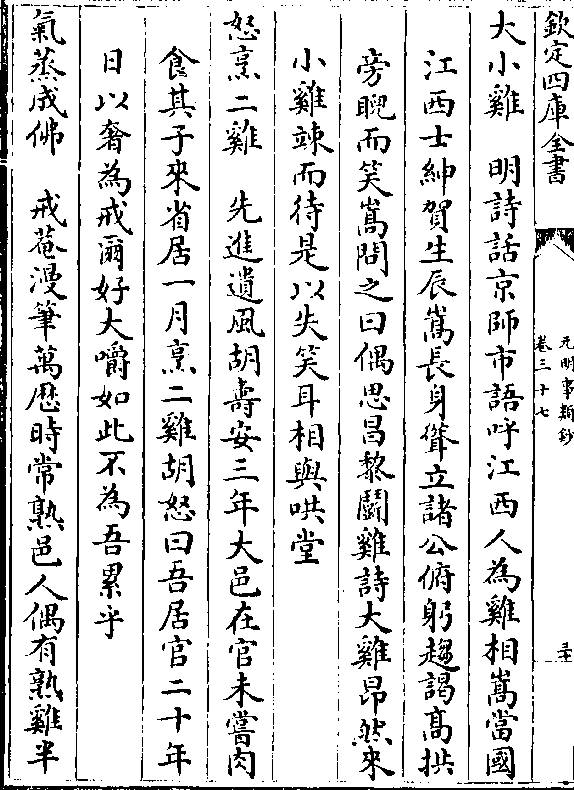 欽定四庫全書
元明事類鈔
卷三十七
大小雞　明詩話京師市語呼江西人為雞相嵩當國
江西士紳賀生辰嵩長身聳立諸公俯躬趨謁高拱
旁睨而笑嵩問之曰偶思昌黎鬭雞詩大雞昂然來
小雞竦而待是以失笑耳相與哄堂
怒烹二雞　先進遺風胡壽安三年大邑在官未嘗肉
食其子來省居一月烹二雞胡怒曰吾居官二十年
日以奢為戒爾好大嚼如此不為吾累乎
氣蒸成佛　戒菴漫筆萬歴時常熟邑人偶有熟雞半